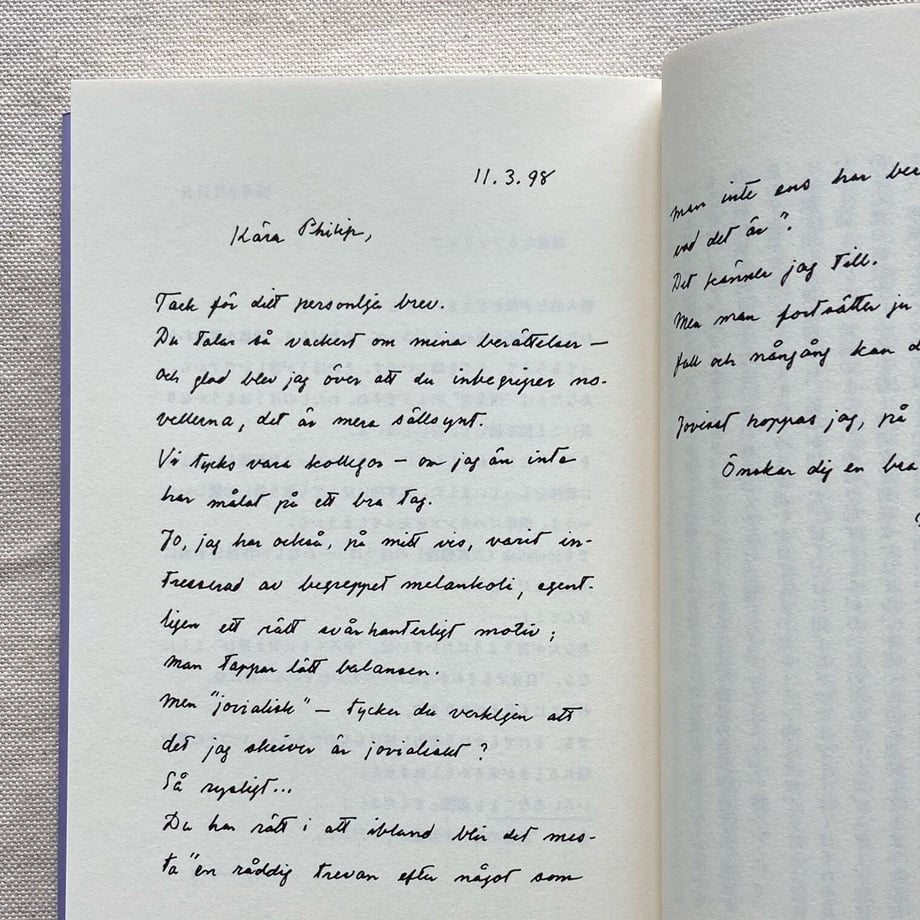 11.3.98
Kära Philip,
Tack för ditt personliga brev.
Du talar så vackert om mina berättelser —
och glad blev jag över att du inbegriper no-
vellerna, det är mera sällsynt.
Vi tycks vara kollegor – om jag än inte
har målat på ett bra tag.
Jo, jag har också, på mitt vis, varit in-
tresserad av begreppet melankoli, egent-
ligen ett rätt svårhanterligt motiv;
man tappar lätt balansen.
Men "jovialisk" — tycker du verkligen att
det jag skriver är jovialiskt?
Så rysligt...
Du har rätt i att ibland blir det mes-
ta "en råddig trevan efter något som
man inte ens har
vad det är".
Det känner jag till.
Men man fortsätter ju
fall och nångång kan
Joviast hoppas jag, på
Önskar dig en bra